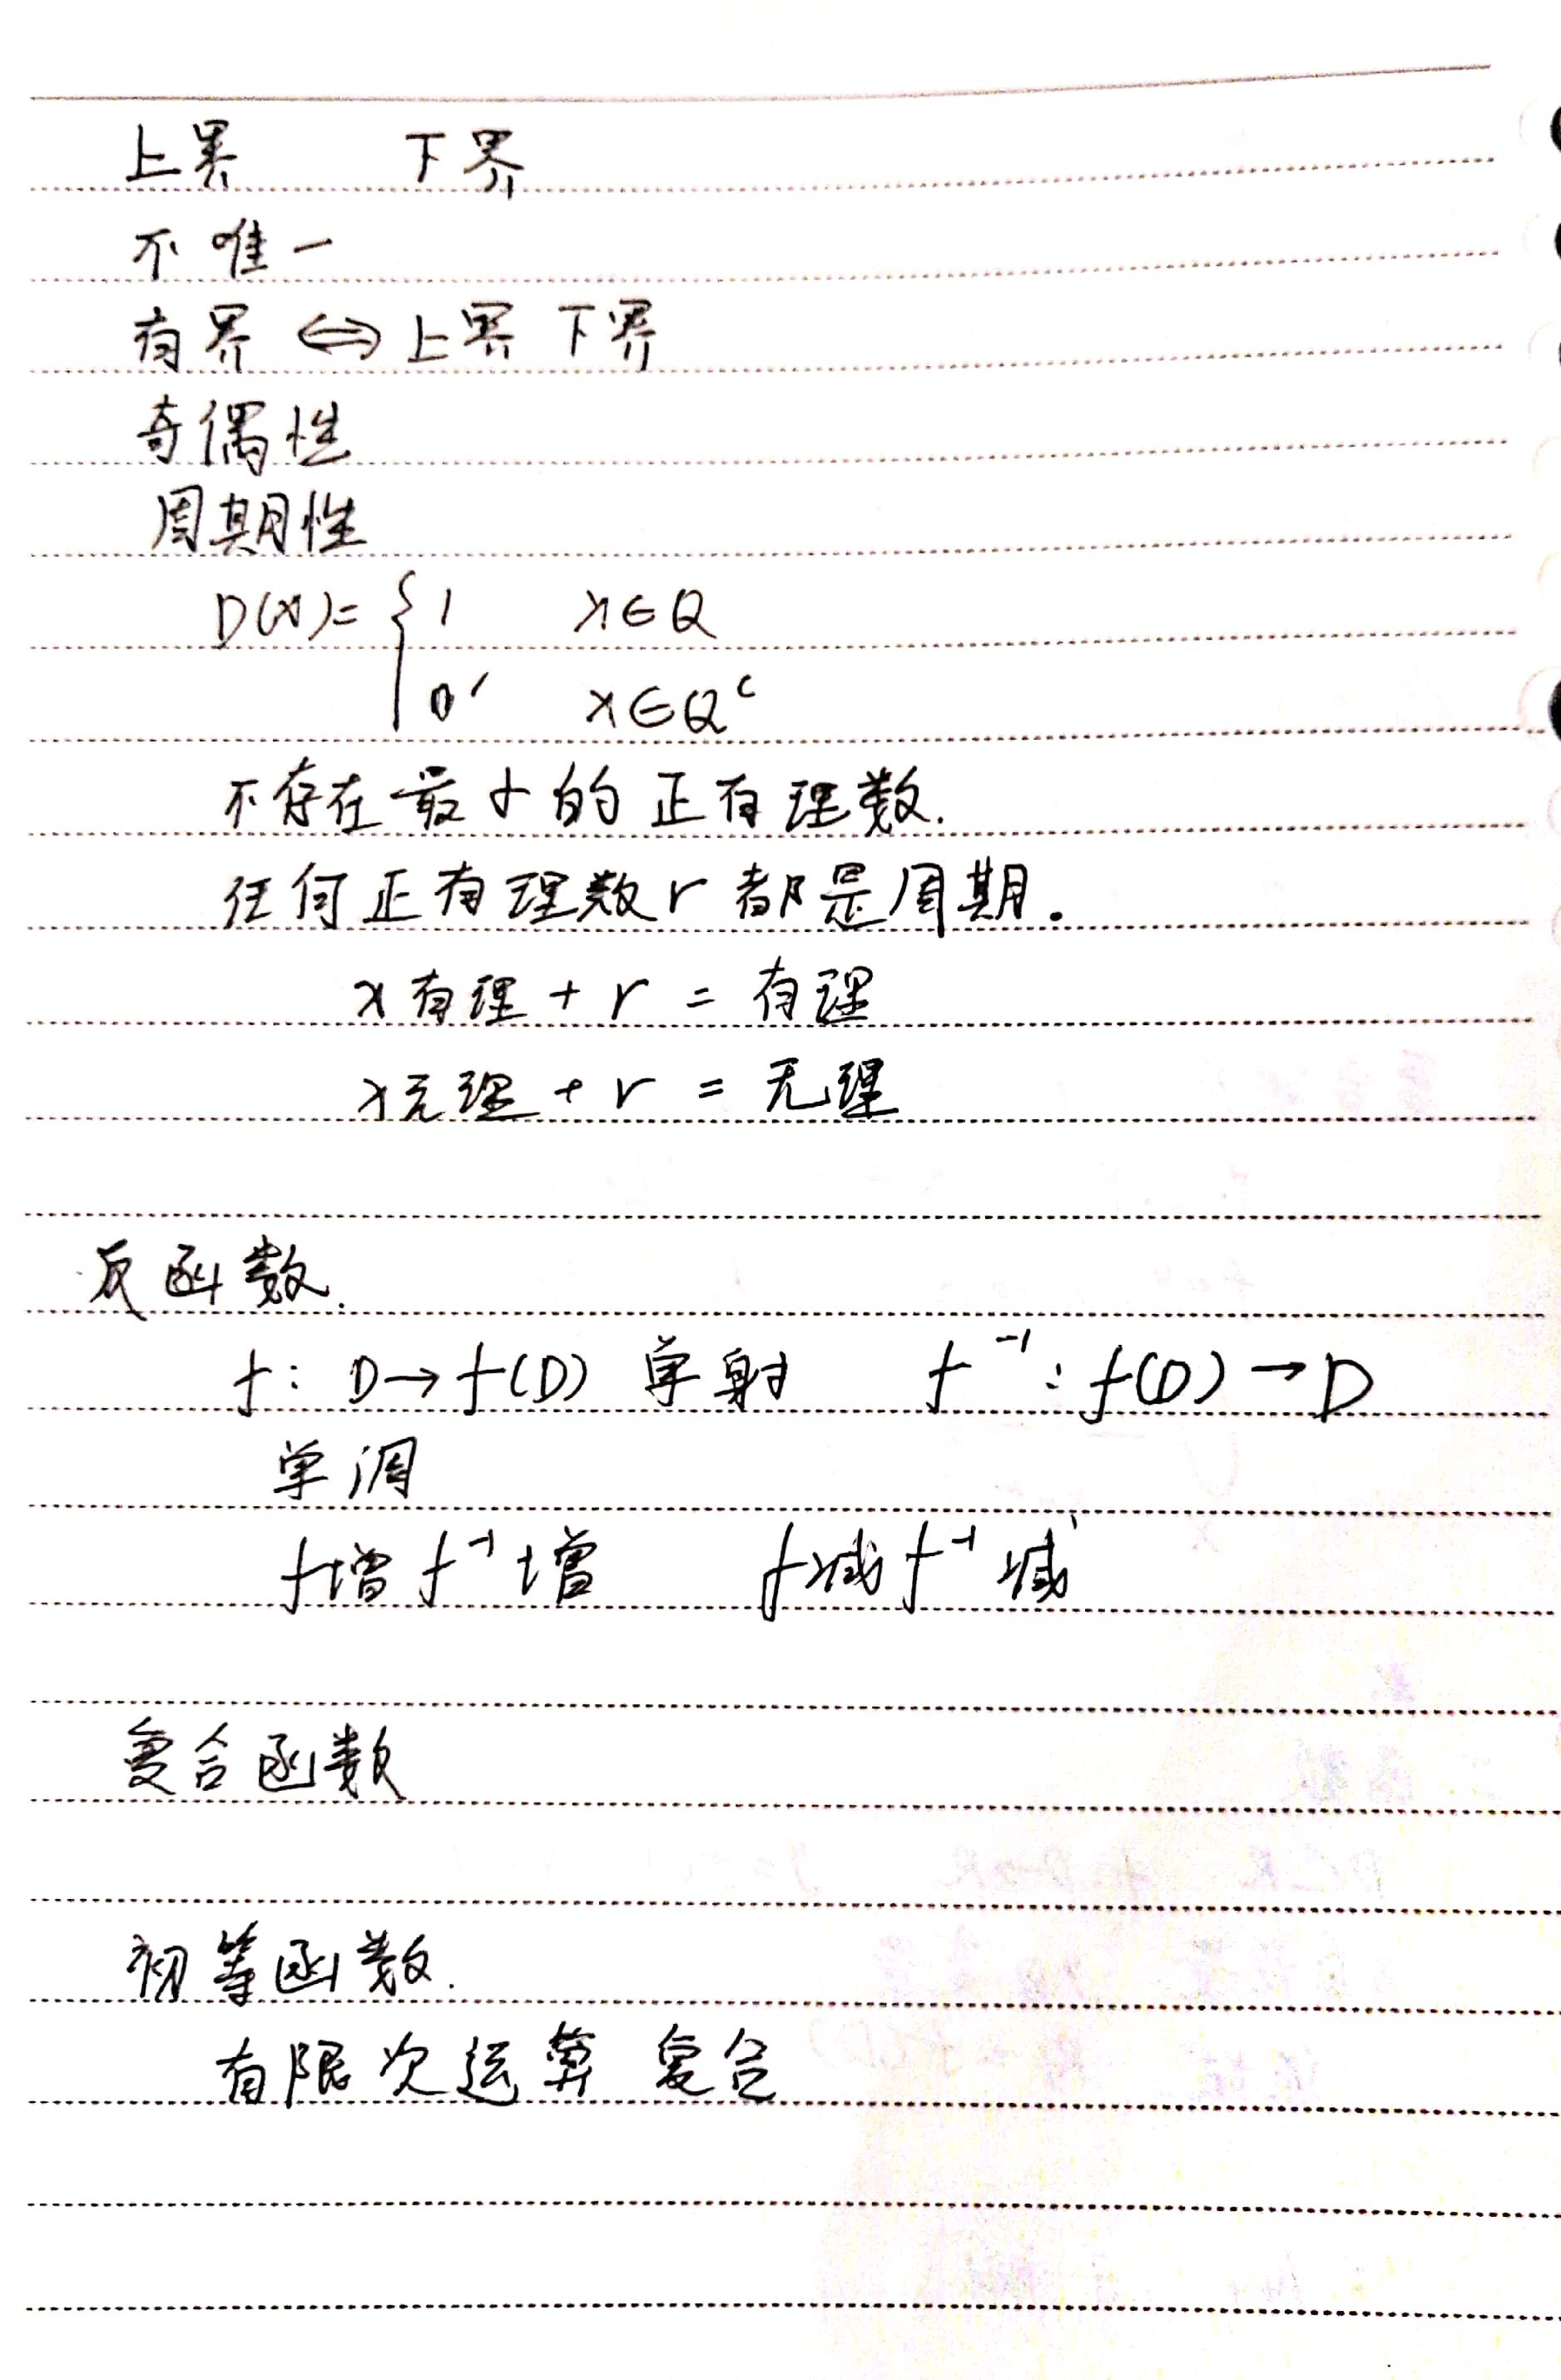 上界 下界
不唯一
有界 ⇔ 上界 下界
奇偶性
周期性
D(x)= { 1 x∈Q
0 x∈Q^c
不存在最小的正有理数.
任何正有理数r都是周期.
x有理 + r = 有理
x无理 + r = 无理
反函数.
f: D→f(D) 单射 f⁻¹: f(D)→D
单调
f增 f⁻¹增 f减 f⁻¹减
复合函数
初等函数.
有限次运算 复合